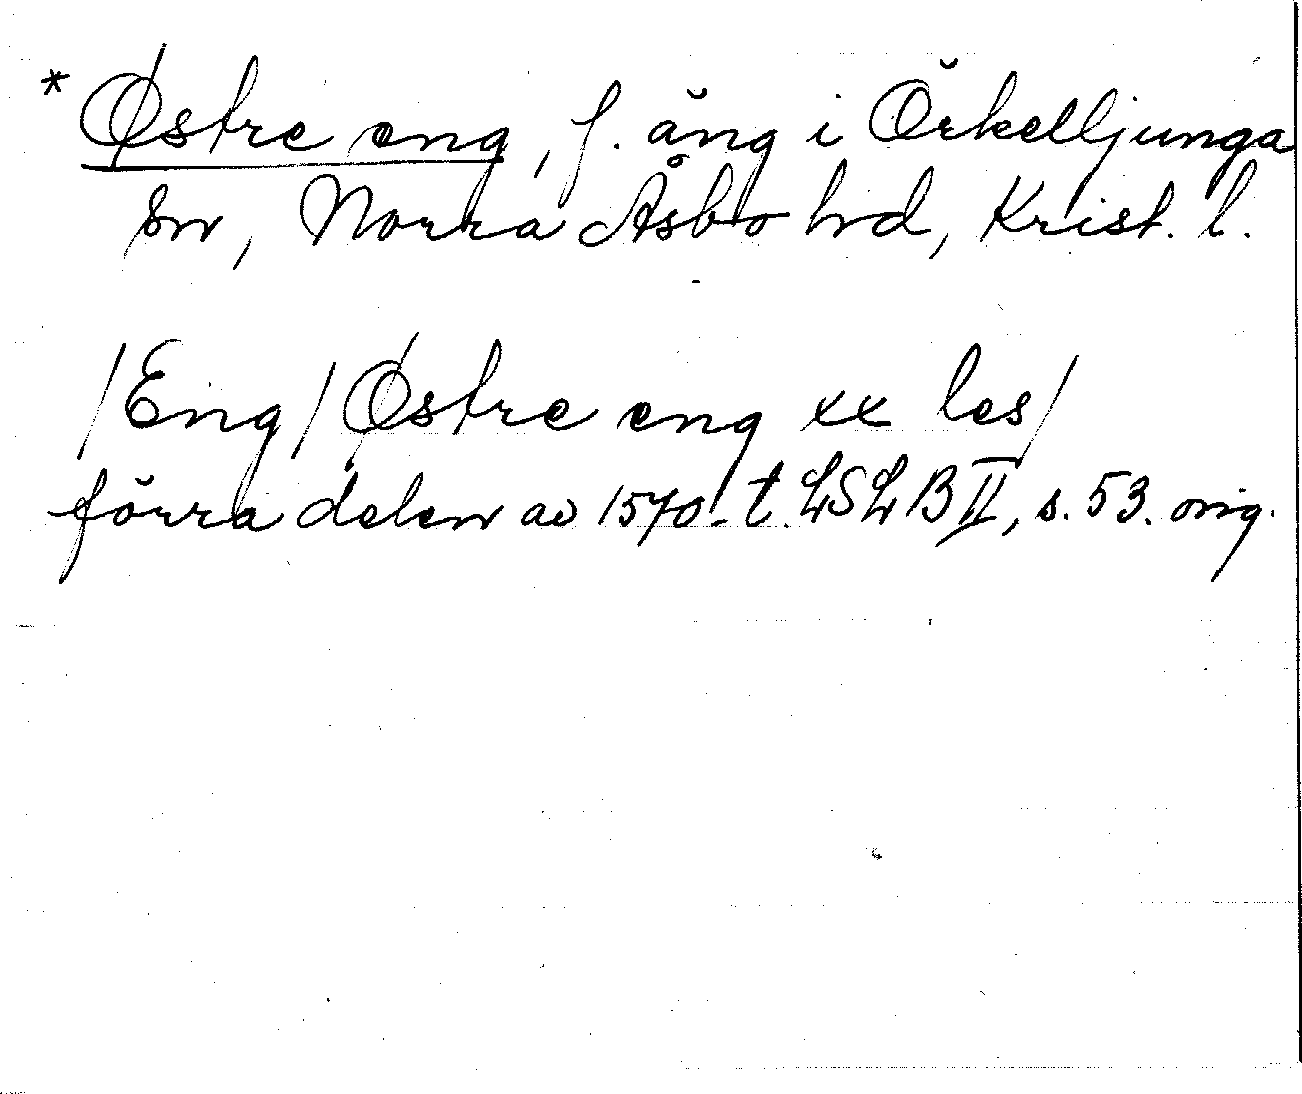 * Østre eng, f. äng i Örkelljunga
sn, Norra Åsbo hrd, Krist. l.
/Eng/ Østre eng xx les/
förra delen av 1570-t. LSLB II, s. 53. orig.